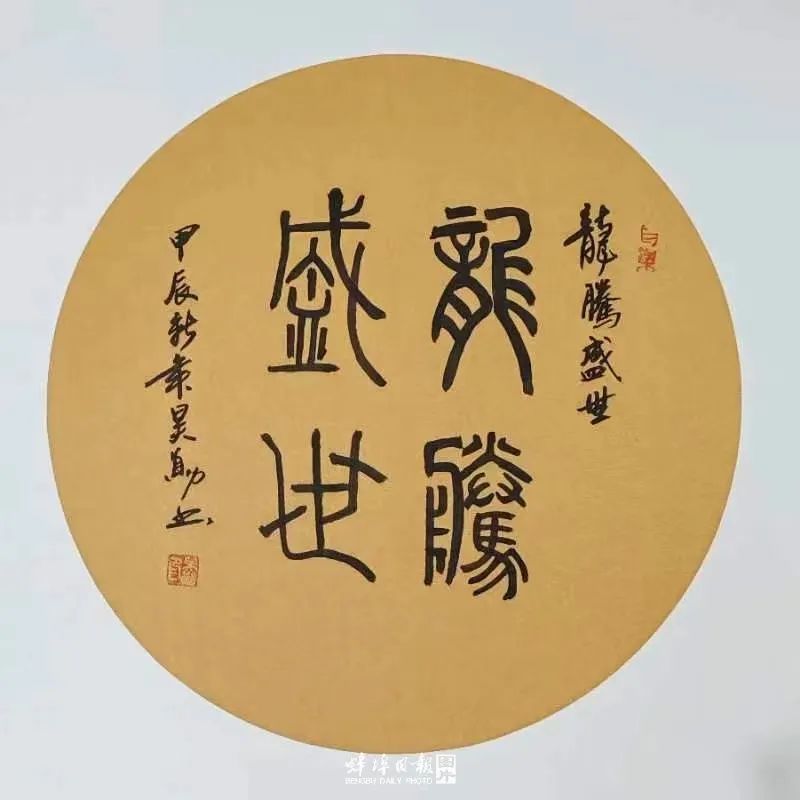 龍騰盛世
龍騰
盛世
甲辰 书
蚌埠日報
BENGBU DAILY PHOTO